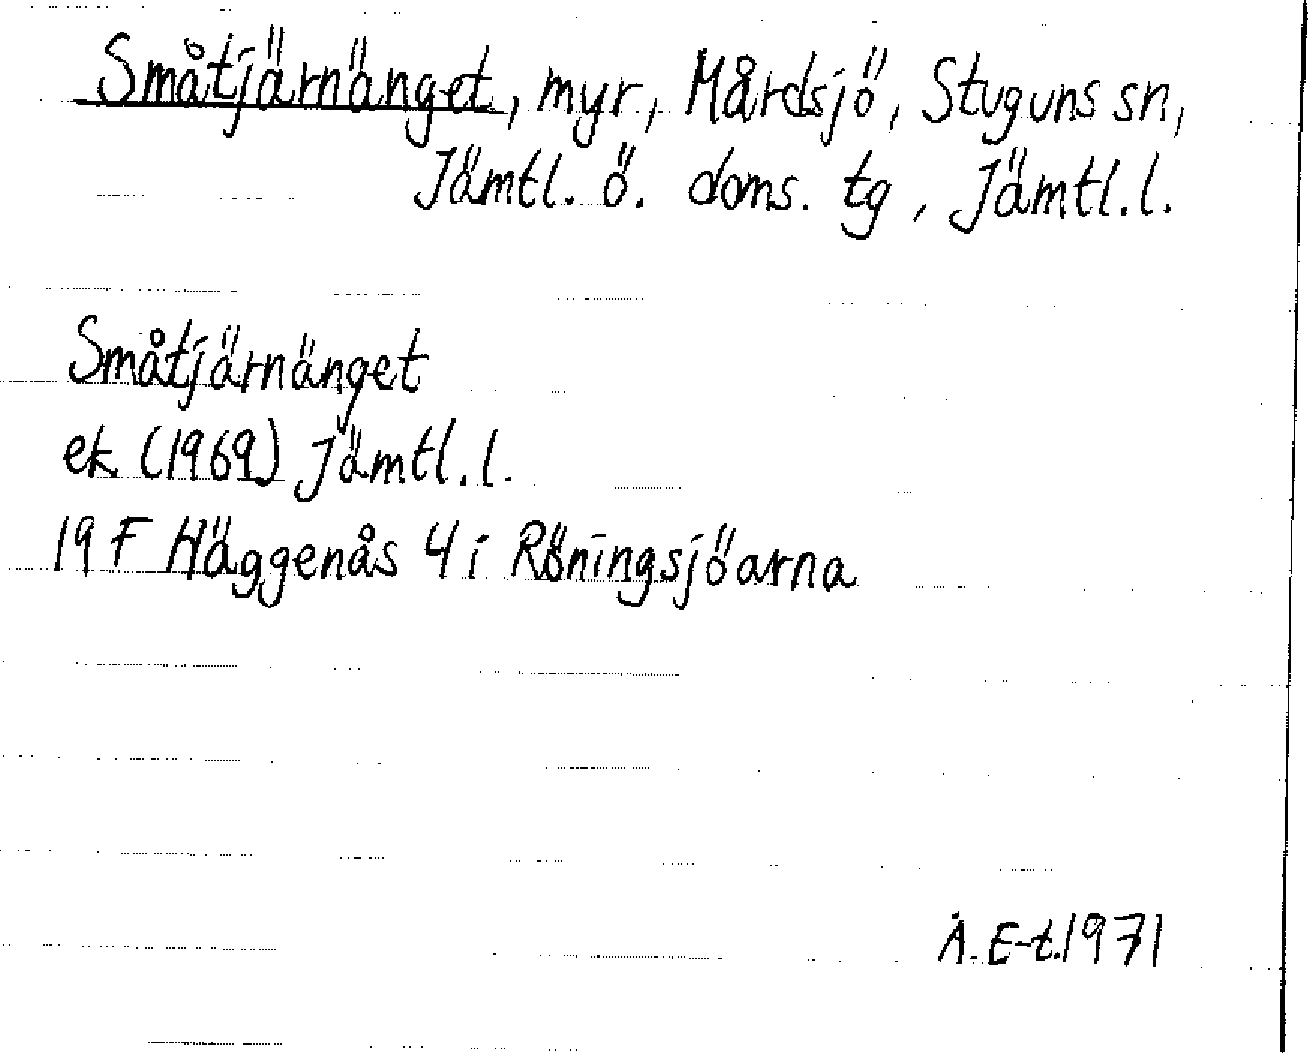 Småtjärnänget, myr, Mårdsjö, Stuguns sn,
Jämtl. ö. doms. tg, Jämtl.l.
Småtjärnänget
ek (1969) Jämtl.l.
19 F Häggenås 4 i Röningsjöarna
Å. E-t. 1971